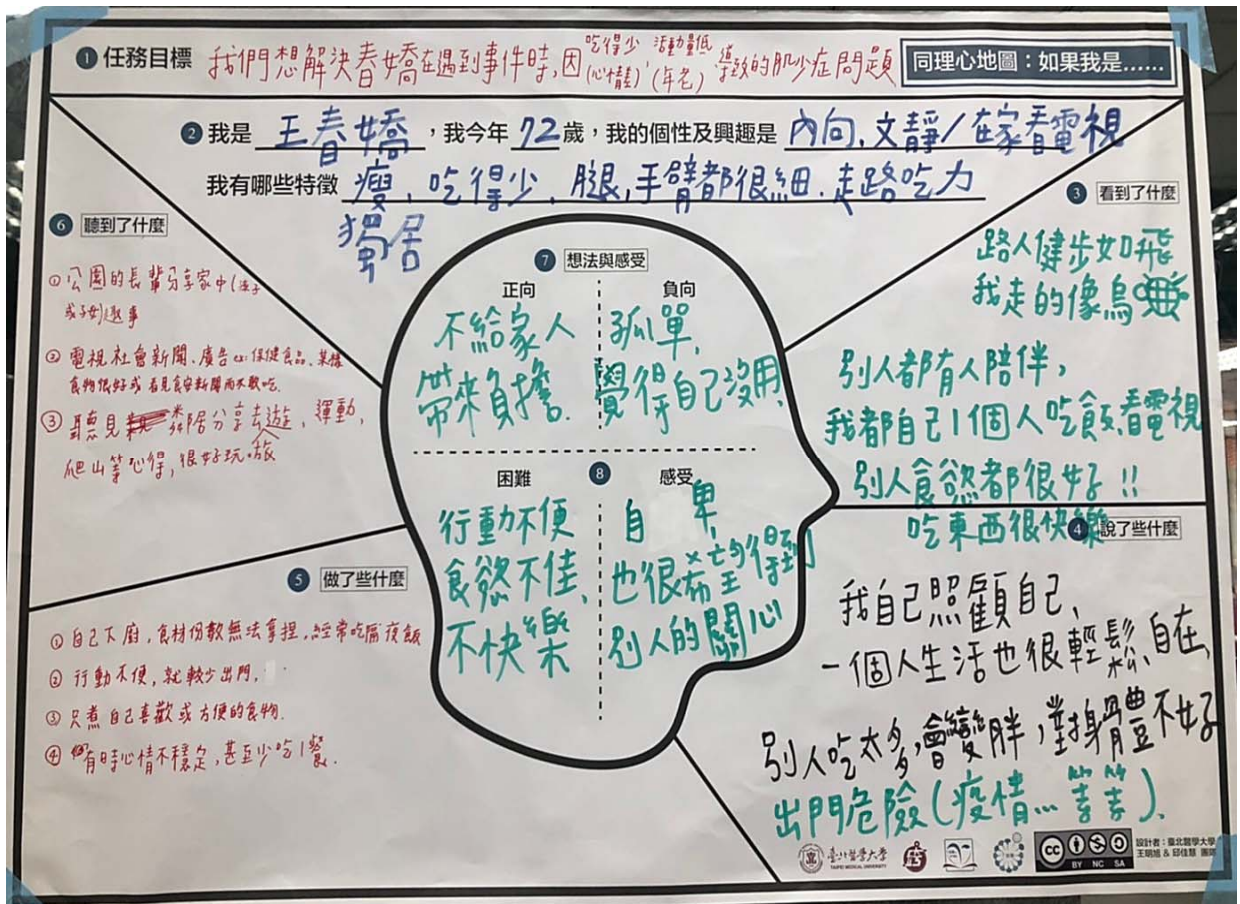 1 任務目標 我們想解決春嬌在遇到事件時,因吃得少(心情差)、活動量低(年老)導致的肌少症問題
同理心地圖:如果我是......
2 我是 王春嬌,我今年 72 歲,我的個性及興趣是 內向、文靜/在家看電視
我有哪些特徵 瘦、吃得少、腿,手臂都很細、走路吃力
獨居
3 看到了什麼
路人健步如飛
我走的像烏龜
別人都有人陪伴,
我都自己1個人吃飯、看電視
別人食慾都很好!!
吃東西很快樂
4 說了些什麼
我自己照顧自己、
一個人生活也很輕鬆、自在,
別人吃太多,會變胖,對身體不好
出門危險(疫情...等等).
5 做了些什麼
① 自己下廚,食材份數無法拿捏,經常吃隔夜飯
② 行動不便,就較少出門,
③ 只煮自己喜歡或方便的食物.
④ 有時心情不穩定,甚至少吃1餐.
6 聽到了什麼
① 公園的長輩分享家中(孫子
或子女)趣事
② 電視社會新聞、廣告 ex:保健食品、某樣
食物很好或看見食安新聞而不敢吃.
③ 聽見鄰居分享去旅遊、運動,
爬山等心得,很好玩
7 想法與感受
正向
不給家人
帶來負擔.
負向
孤單,
覺得自己沒用,
8
困難
行動不便
食慾不佳,
不快樂
感受
自卑,
也很希望得到
別人的關心
臺北醫學大學
TAIPEI MEDICAL UNIVERSITY
CC BY NC SA
設計者:臺北醫學大學
王明旭 & 邱佳慧 團隊